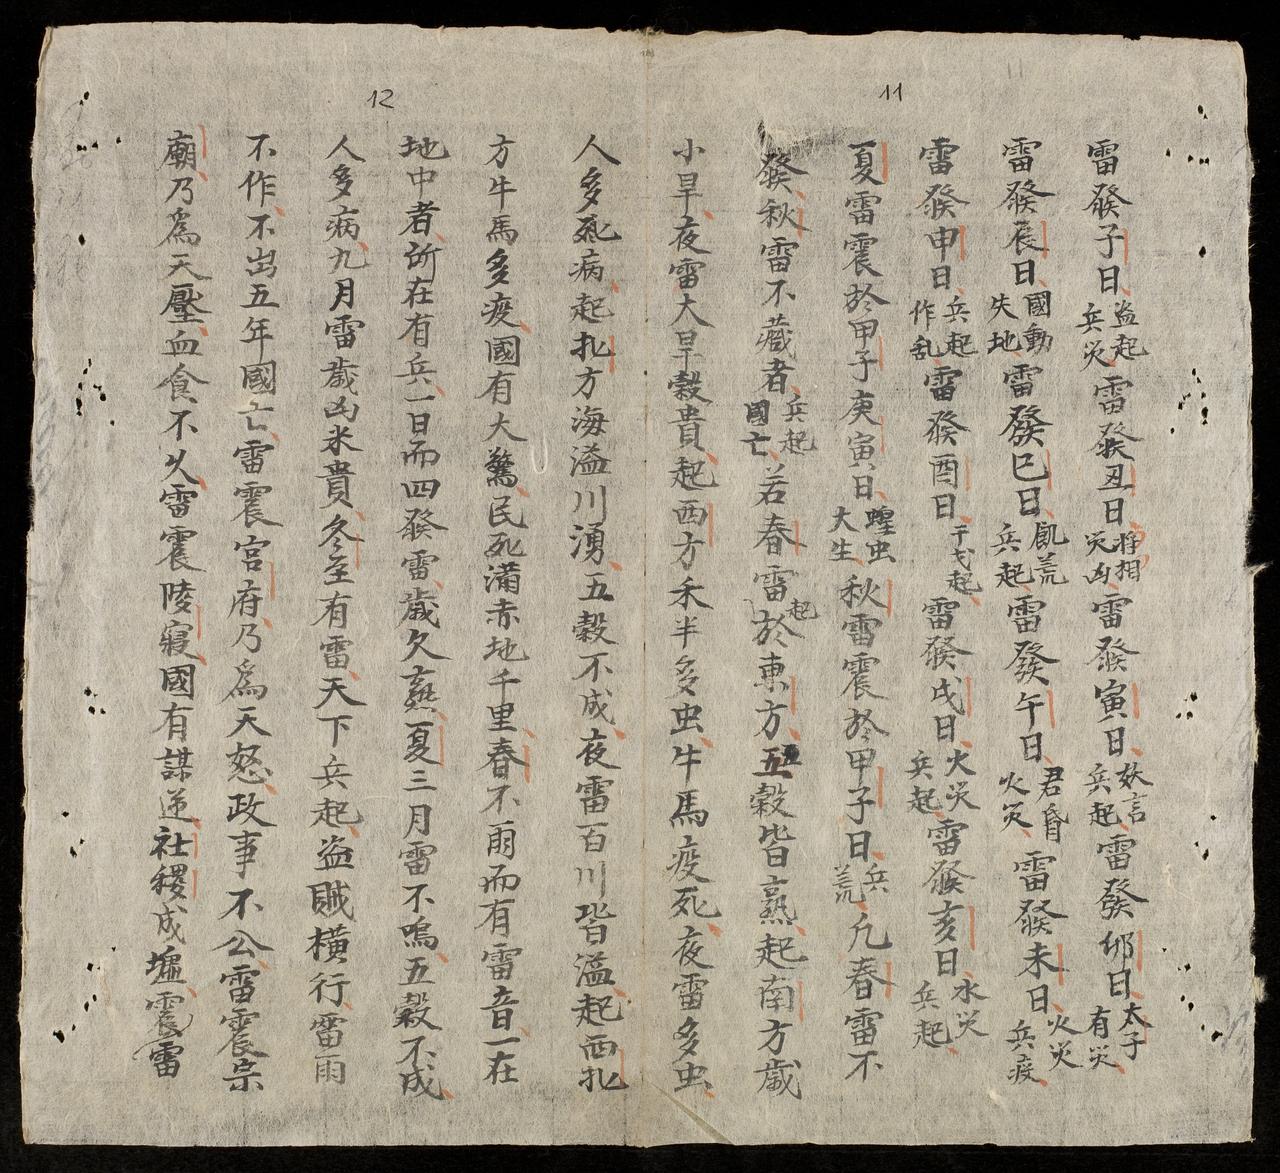 11
雷發子日盗起兵災雷發丑日将相災凶雷發寅日妖言兵起雷發卯日太子有災
雷發辰日國動失地雷發巳日飢荒兵起雷發午日君昏火災雷發未日火災兵疫
雷發申日兵起作乱雷發酉日干戈起雷發戌日火災兵起雷發亥日水災兵起
夏雷震於甲子庚寅日蝗虫大生秋雷震於甲子日兵荒凡春雷不
發秋雷不藏者兵起國亡若春雷起於東方五穀皆熹起南方歲
小旱夜雷大旱穀貴起西方禾半多虫牛馬疫死夜雷多虫
12
人多死病起北方海溢川湧五穀不成夜雷百川皆溢起西北
方牛馬多疫國有大驚民死滿赤地千里春不雨而有雷音一在
地中者所在有兵一日而四發雷歲欠熹夏三月雷不鳴五穀不成
人多病九月雷歲凶米貴冬至有雷天下兵起盗賊橫行雷雨
不作不出五年國亡雷震宮府乃爲天怒政事不公雷震宗
廟乃爲天壓血食不久雷震陵寢國有謀逆社稷成墟震雷